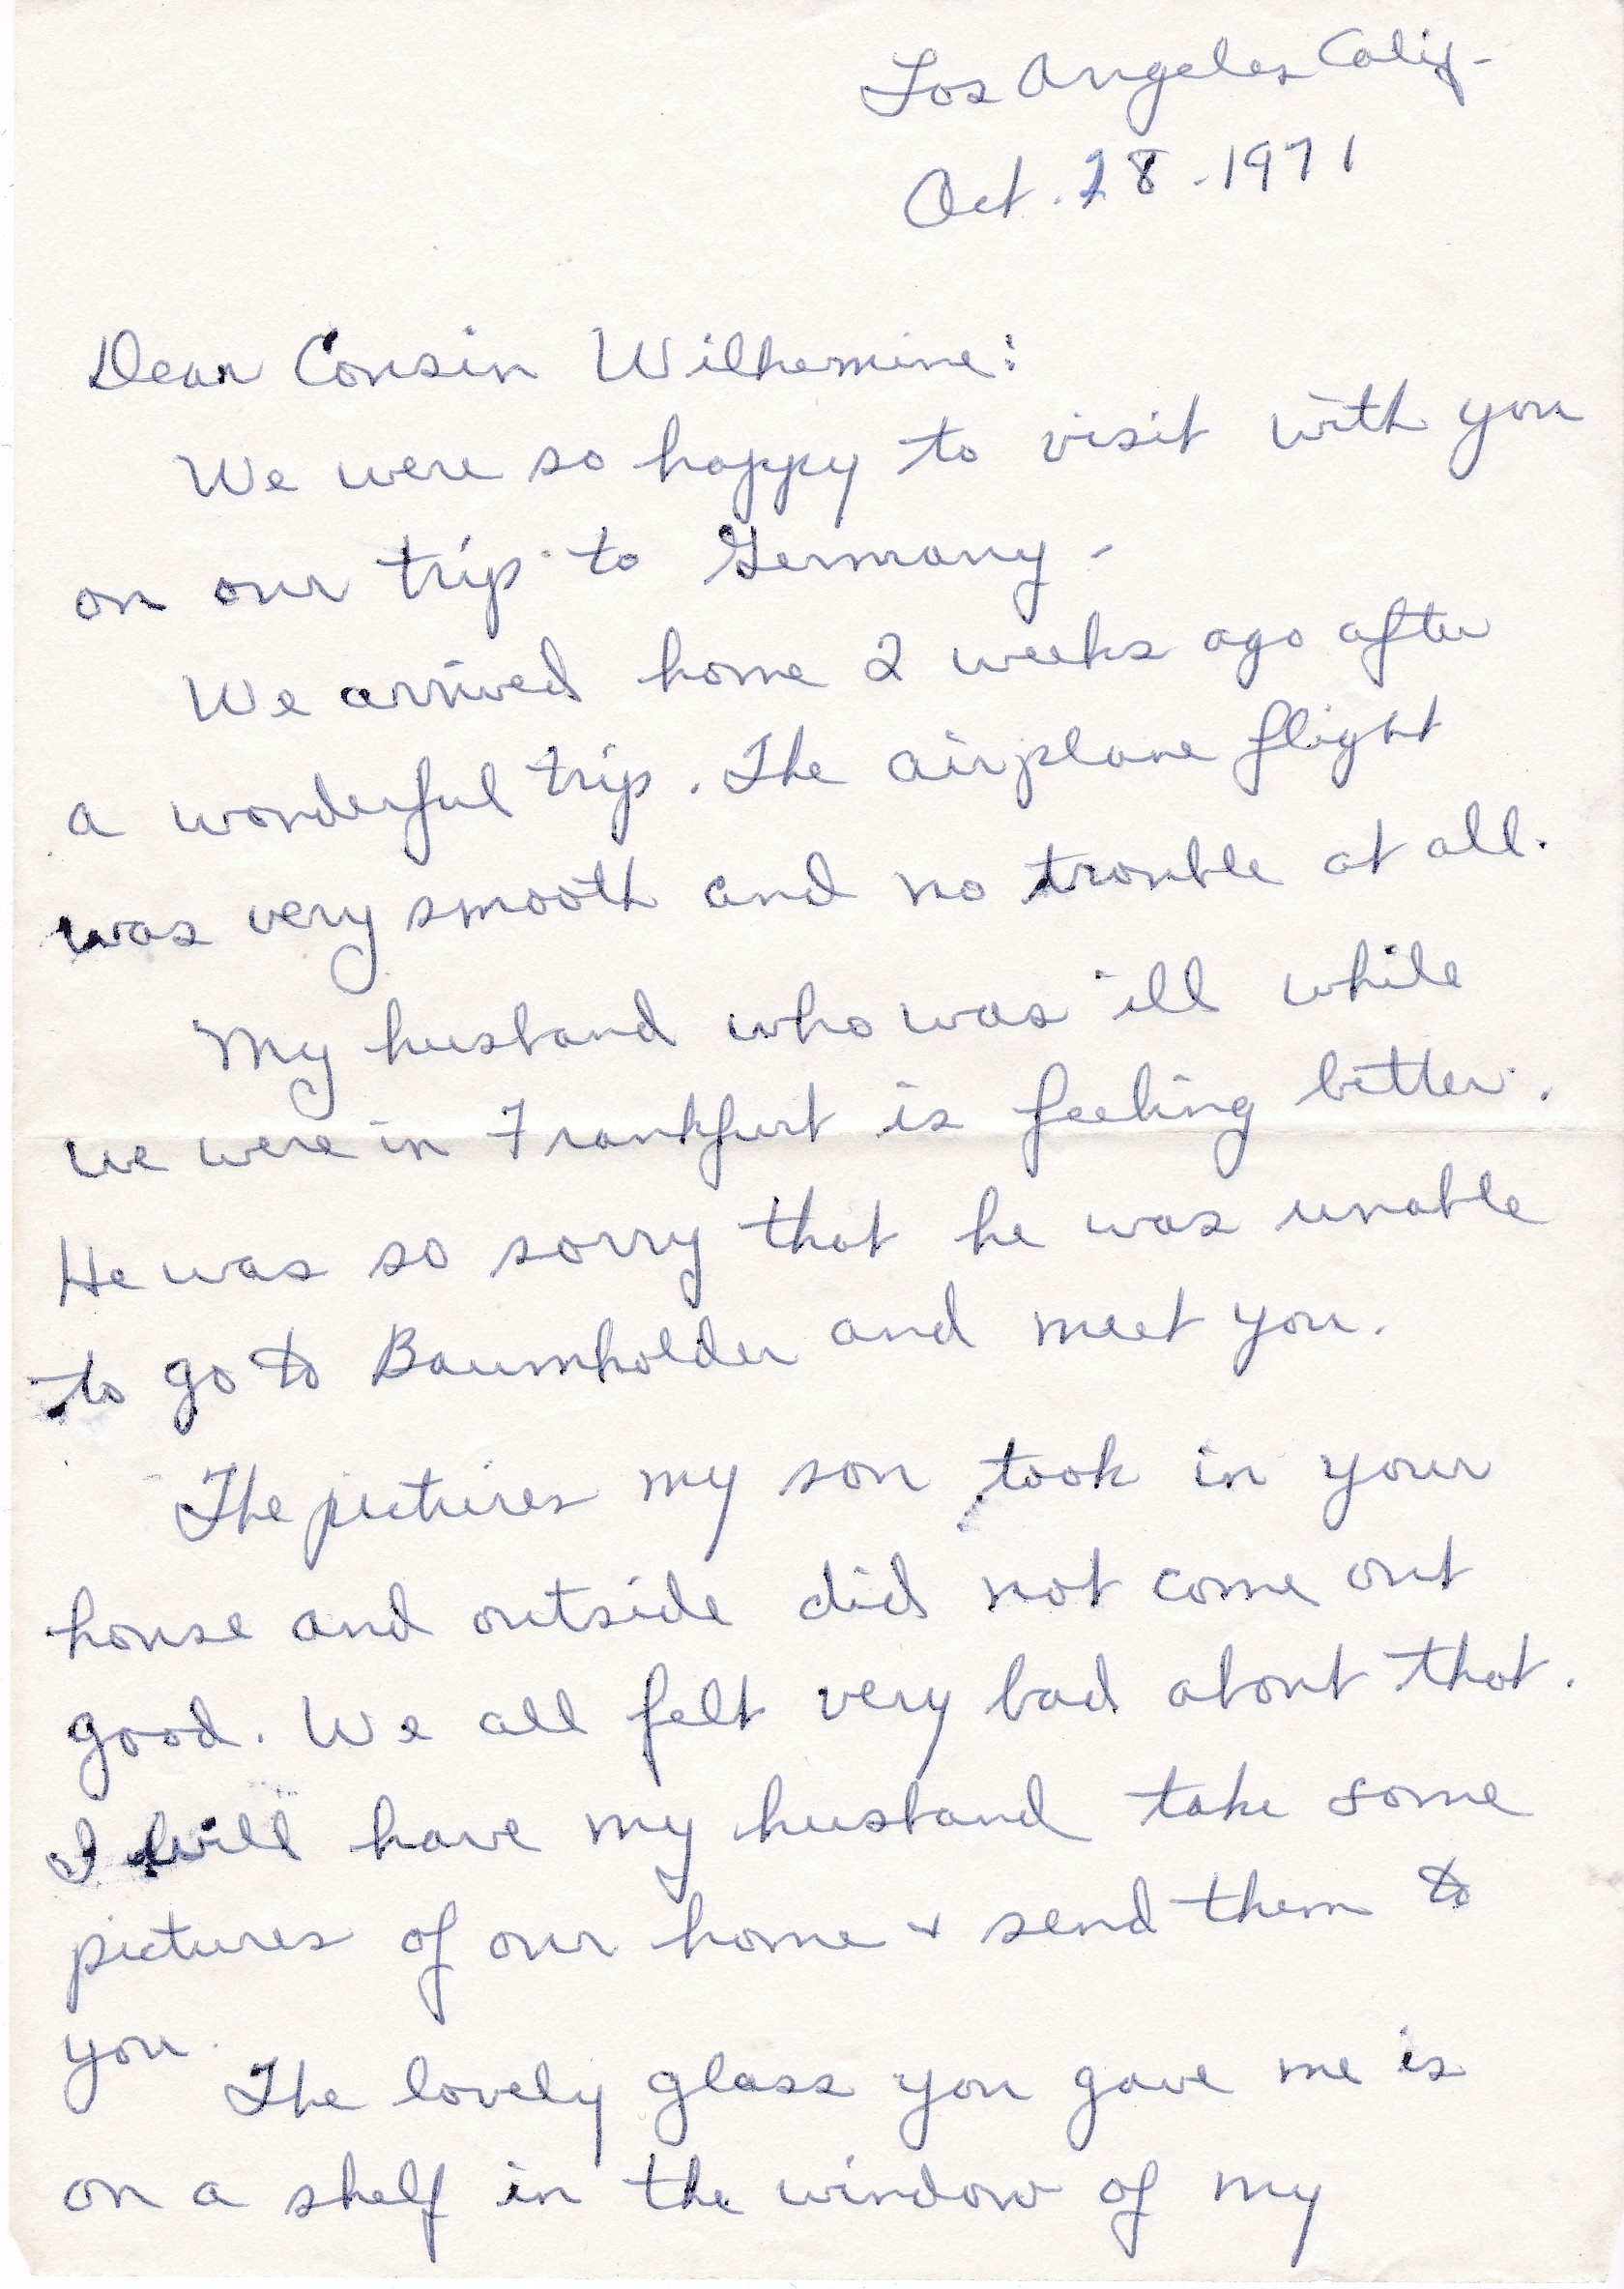 Los Angeles Calif-
Oct. 28-1971
Dear Cousin Wilhemine:
We were so happy to visit with you
on our trip to Germany-
We arrived home 2 weeks ago after
a wonderful trip. The airplane flight
was very smooth and no trouble at all.
My husband who was ill while
we were in Frankfurt is feeling better.
He was so sorry that he was unable
to go to Baumholder and meet you.
The pictures my son took in your
house and outside did not come out
good. We all felt very bad about that.
I will have my husband take some
pictures of our home + send them to
you.
The lovely glass you gave me is
on a shelf in the window of my